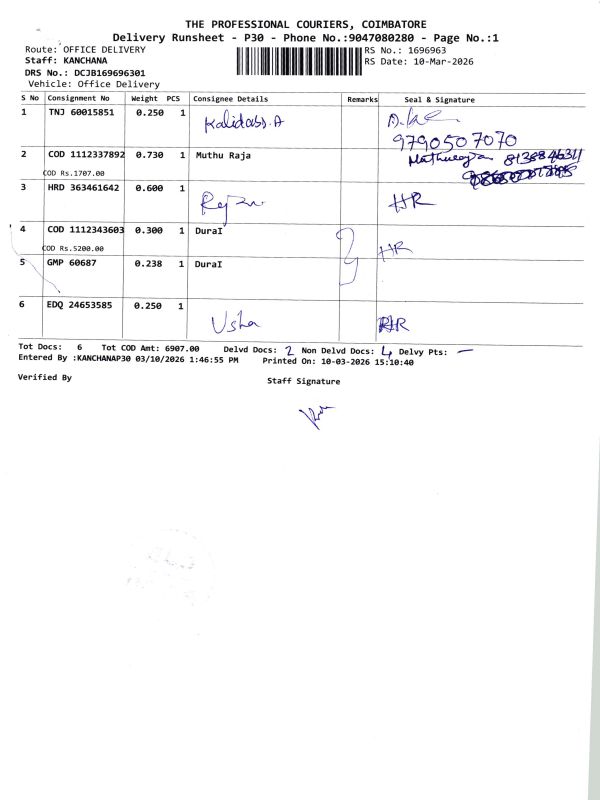 THE PROFESSIONAL COURIERS, COIMBATORE
Delivery Runsheet - P30 - Phone No.:9047080280 - Page No.:1
Route: OFFICE DELIVERY RS No.: 1696963
Staff: KANCHANA RS Date: 10-Mar-2026
DRS No.: DCJB169696301
Vehicle: Office Delivery
S No Consignment No Weight PCS Consignee Details Remarks Seal & Signature
1 TNJ 60015851 0.250 1 Kalidass.A
9790507070
2 COD 1112337892 0.730 1 Muthu Raja
COD Rs.1707.00
3 HRD 363461642 0.600 1 HR
4 COD 1112343603 0.300 1 DuraI HR
COD Rs.5200.00
5 GMP 60687 0.238 1 DuraI
6 EDQ 24653585 0.250 1 Usha HR
Tot Docs: 6 Tot COD Amt: 6907.00 Delvd Docs: 2 Non Delvd Docs: 4 Delvy Pts: —
Entered By :KANCHANAP30 03/10/2026 1:46:55 PM Printed On: 10-03-2026 15:10:40
Verified By Staff Signature